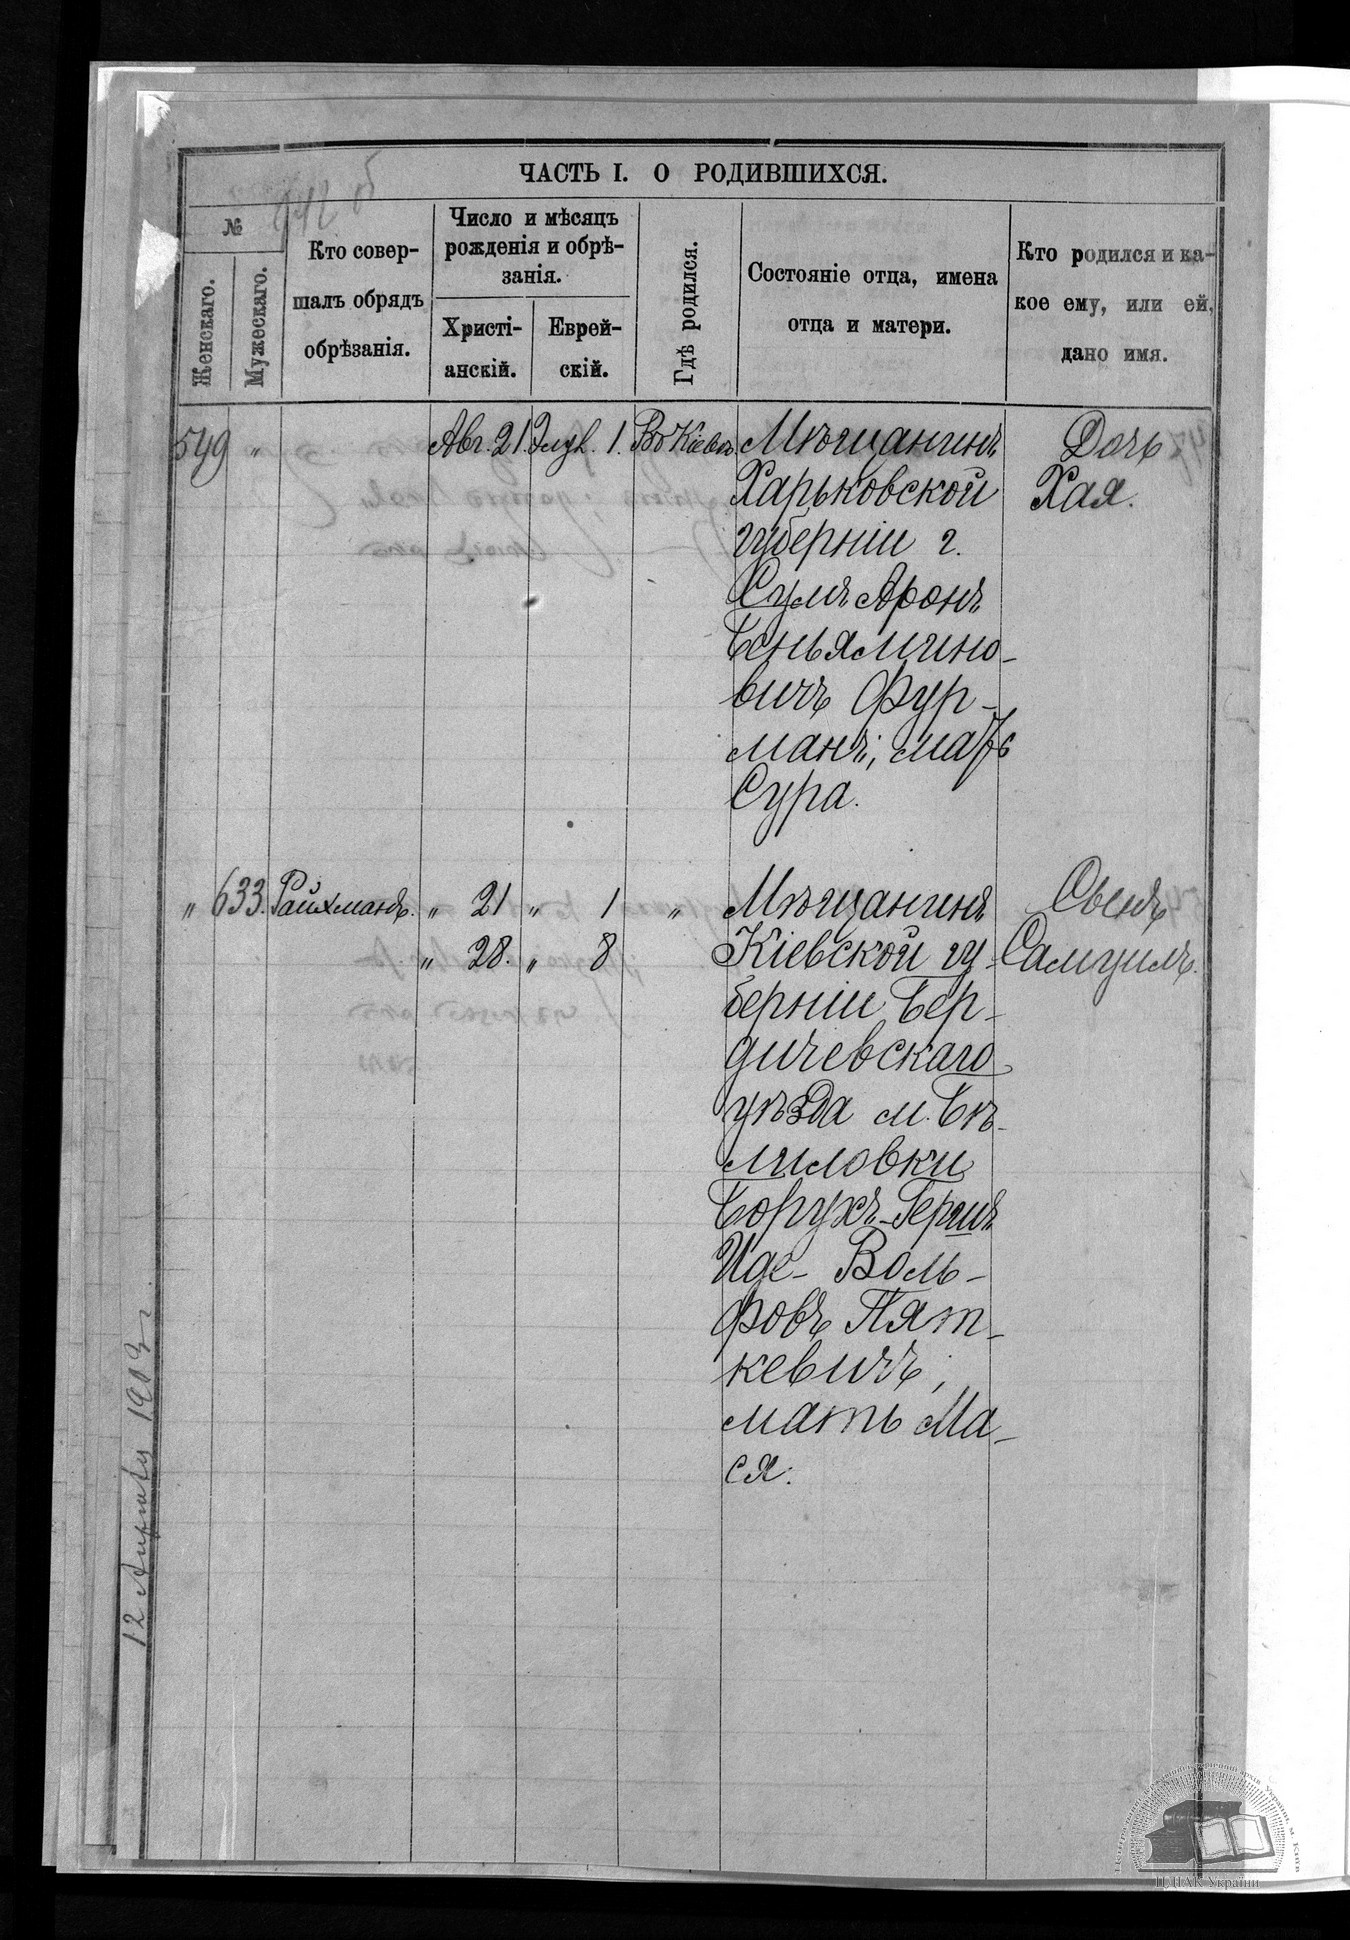 ЧАСТЬ I. О РОДИВШИХСЯ.
№
Женскаго.
Мужескаго.
Кто совер-
шалъ обрядъ
обрѣзанія.
Число и мѣсяцъ
рожденія и обрѣ-
занія.
Христі-
анскій.
Еврей-
скій.
Гдѣ родился.
Состояніе отца, имена
отца и матери.
Кто родился и ка-
кое ему, или ей,
дано имя.
549 " Авг. 21. Элул. 1. Въ Кіевѣ
Мѣщанинъ
Харьковской
губерніи г.
Сумъ Аронъ
Беньямино-
вичъ Фур-
манъ; мать
Сура.
Дочь
Хая.
" 633. Райхманъ. " 21 " 1 "
" 28. " 8
Мѣщанинъ
Кіевской гу-
берніи Бер-
дичевскаго
уѣзда м. Бѣ-
лиловки
Борухъ-Гершъ
Иде-Воль-
фовъ Пят-
кевичъ;
мать Ма-
ся.
Сынъ
Самуилъ.
12 1903 г.
ЦДІАК України